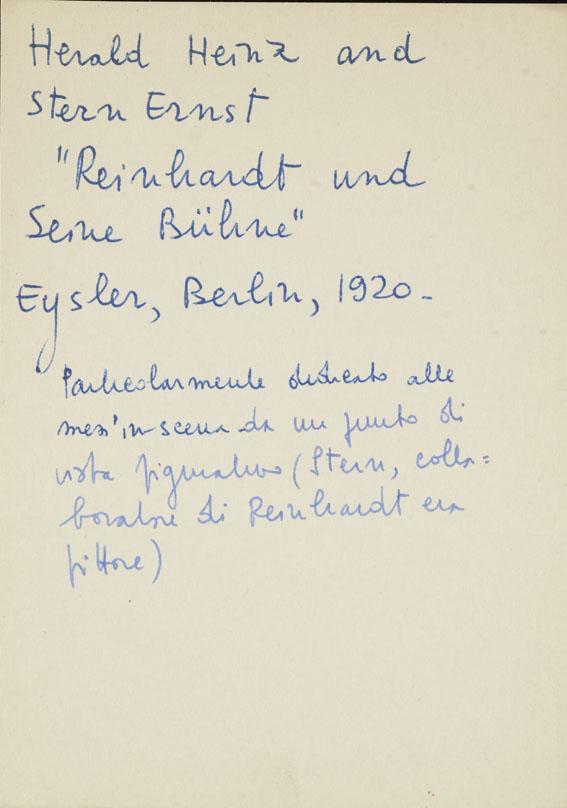 Herald Heinz and
Stern Ernst
"Reinhardt und
Seine Bühne"
Eysler, Berlin, 1920-
Particolarmente dedicato alle
mess'in-scena da un punto di
vista figurativo (Stern, colla=
boratore di Reinhardt era
pittore)